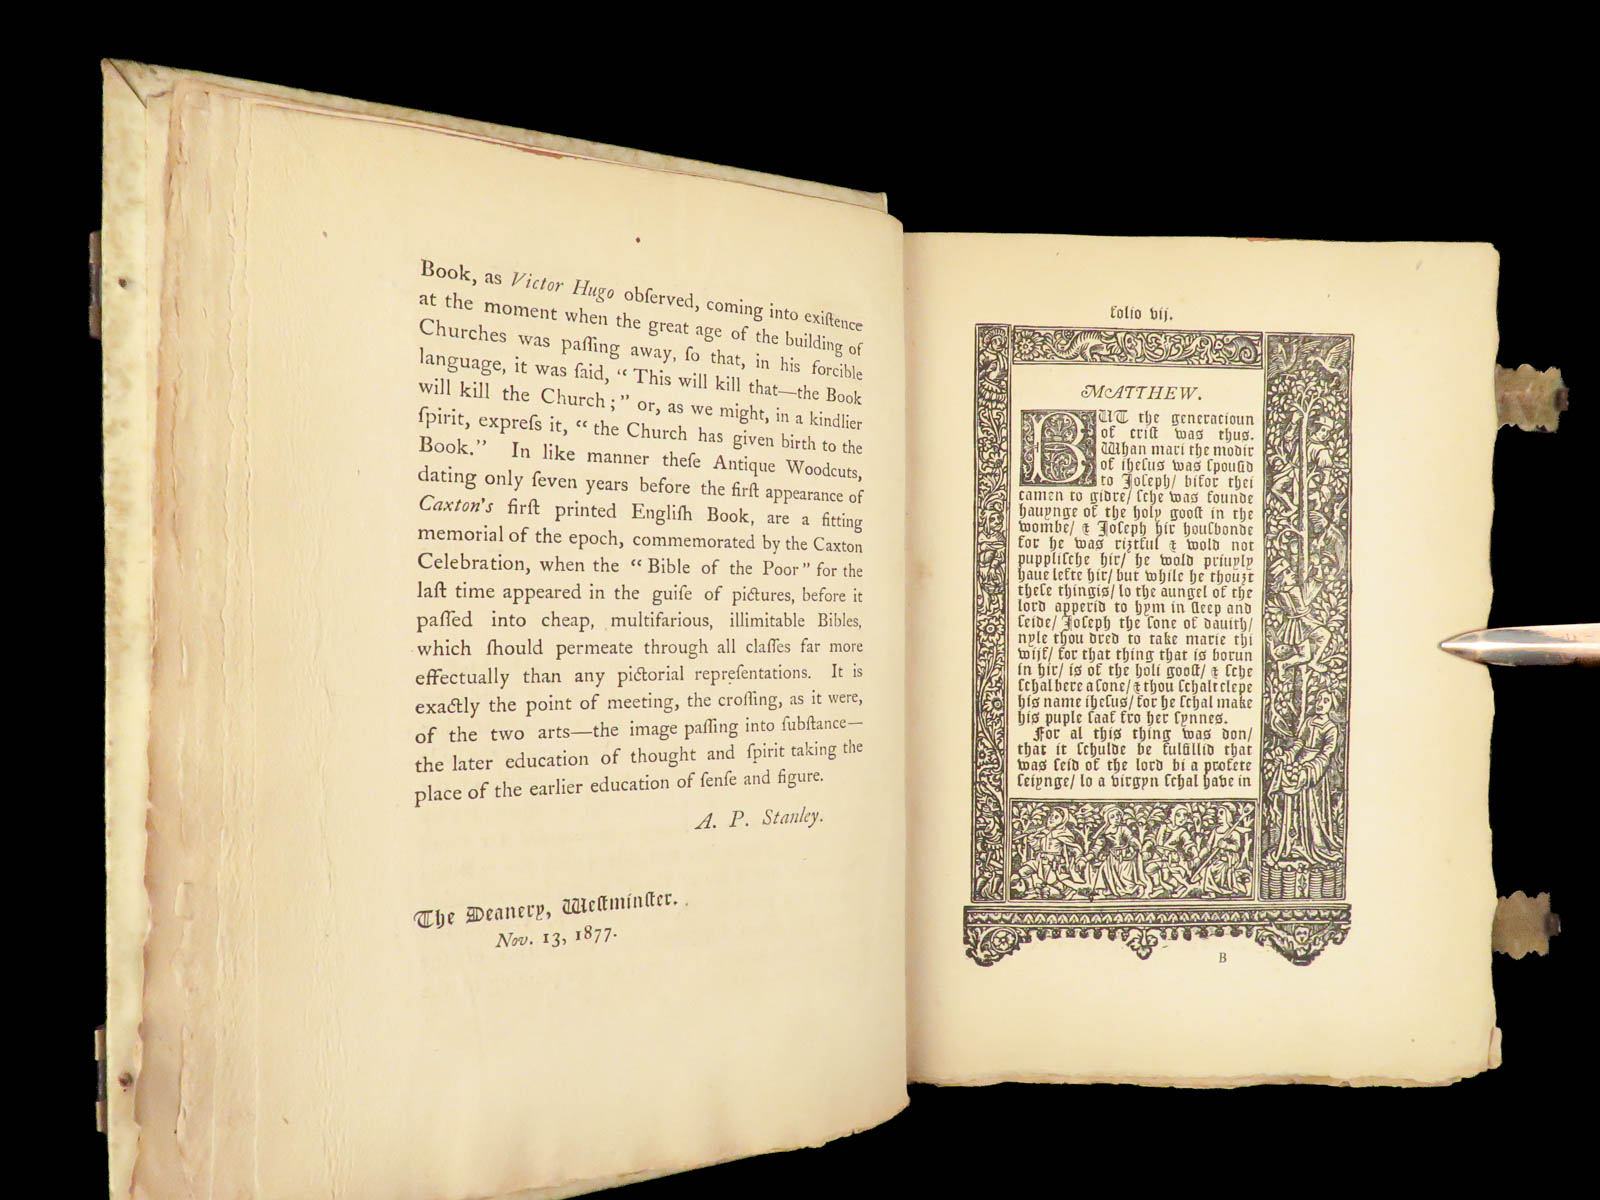 Book, as Victor Hugo obſerved, coming into exiſtence
at the moment when the great age of the building of
Churches was paſſing away, ſo that, in his forcible
language, it was ſaid, “ This will kill that—the Book
will kill the Church ; ” or, as we might, in a kindlier
ſpirit, expreſs it, “ the Church has given birth to the
Book.” In like manner theſe Antique Woodcuts,
dating only ſeven years before the firſt appearance of
Caxton's firſt printed Engliſh Book, are a fitting
memorial of the epoch, commemorated by the Caxton
Celebration, when the “ Bible of the Poor ” for the
laſt time appeared in the guiſe of pictures, before it
paſſed into cheap, multifarious, illimitable Bibles,
which ſhould permeate through all claſſes far more
effectually than any pictorial repreſentations. It is
exactly the point of meeting, the croſſing, as it were,
of the two arts—the image paſſing into ſubſtance—
the later education of thought and ſpirit taking the
place of the earlier education of ſenſe and figure.
A. P. Stanley.
The Deanery, Weſtminſter.
Nov. 13, 1877.
folio vij.
MATTHEW.
BUT the generacioun
of criſt was thus.
Whan mari the modir
of iheſus was ſpouſid
to Joſeph/ bifor thei
camen to gidre/ ſche was founde
hauynge of the holy gooſt in the
wombe/ & Joſeph hir houſbonde
for he was riȝtful & wold not
puppliſche hir/ he wold priuyly
haue lefte hir/ but while he thouȝt
theſe thingis/ lo the aungel of the
lord apperid to hym in ſleep and
ſeide/ Joſeph the ſone of dauith/
nyle thou dred to take marie thi
wijf/ for that thing that is borun
in hir/ is of the holi gooſt/ & ſche
ſchal bere a ſone/ & thou ſchalt clepe
his name iheſus/ for he ſchal make
his puple ſaaf fro her ſynnes.
For al this thing was don/
that it ſchulde be fulfillid that
was ſeid of the lord bi a profete
ſeiynge/ lo a virgyn ſchal have in
B